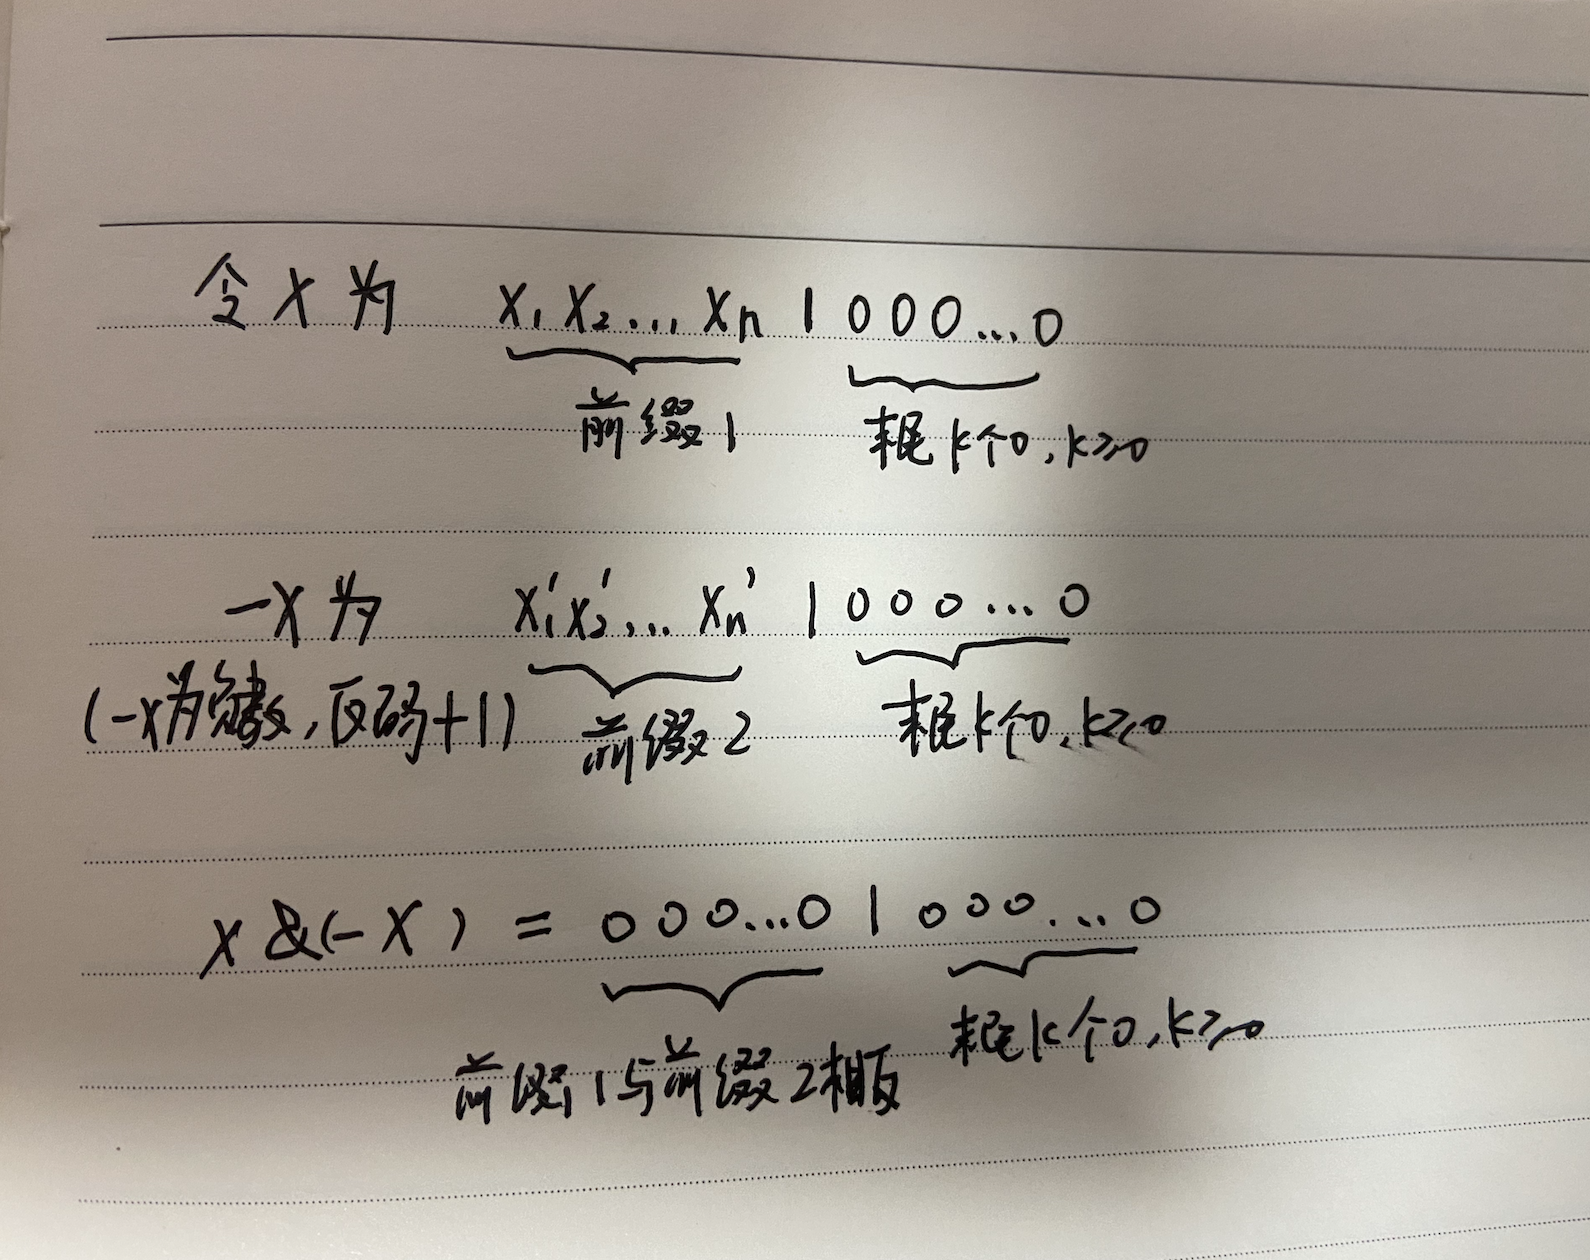 令 X 为 X₁ X₂ ... Xn 1 0 0 0 ... 0
前缀1 末尾k个0, k≥0
-X 为 X₁' X₂' ... Xn' 1 0 0 0 ... 0
(-X为负数, 反码+1) 前缀2 末尾k个0, k≥0
X &(-X) = 0 0 0 ... 0 1 0 0 0 ... 0
前缀1与前缀2相反 末尾k个0, k≥0